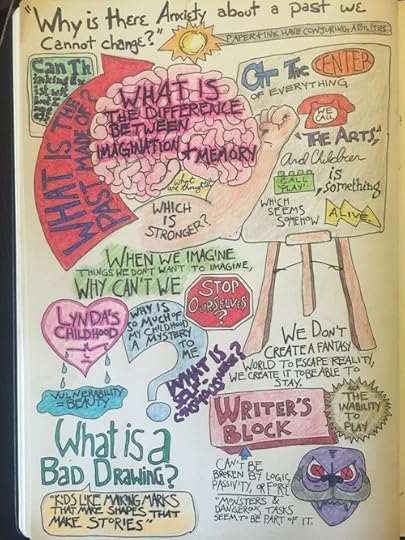 "Why is there Anxiety about a past we
Cannot change?"
PAPER + INK HAVE CONJURING ABILITIES.
WHAT IS THE
PAST MADE OF?
WHAT IS
THE DIFFERENCE
BETWEEN
IMAGINATION + MEMORY
what
are thoughts?
WHICH
IS
STRONGER?
AT THE CENTER
OF EVERYTHING
WE
CALL
"THE ARTS,"
And Children
CALL
"PLAY"
is
something
WHICH
SEEMS
SOMEHOW
ALIVE.
WHEN WE IMAGINE
THINGS WE DON'T WANT TO IMAGINE,
WHY CAN'T WE
STOP
OURSELVES
?
LYNDA'S
CHILDHOOD
VULNERABILITY
= BEAUTY
WHY IS
SO MUCH OF
MY CHILDHOOD
A MYSTERY
TO
ME
WHAT IS
SELF-
WE DON'T
CREATE A FANTASY
WORLD TO ESCAPE REALITY,
WE CREATE IT TO BE ABLE TO
STAY.
WRITER'S
BLOCK
AKA
THE
INABILITY
TO
PLAY
CAN'T BE
BROKEN BY LOGIC,
PASSIVITY, OR FORCE
"MONSTERS &
DANGEROUS TASKS
SEEM TO BE PART OF IT.
What is a
BAD DRAWING?
"KIDS LIKE MAKING MARKS
THAT MAKE SHAPES THAT
MAKE STORIES"